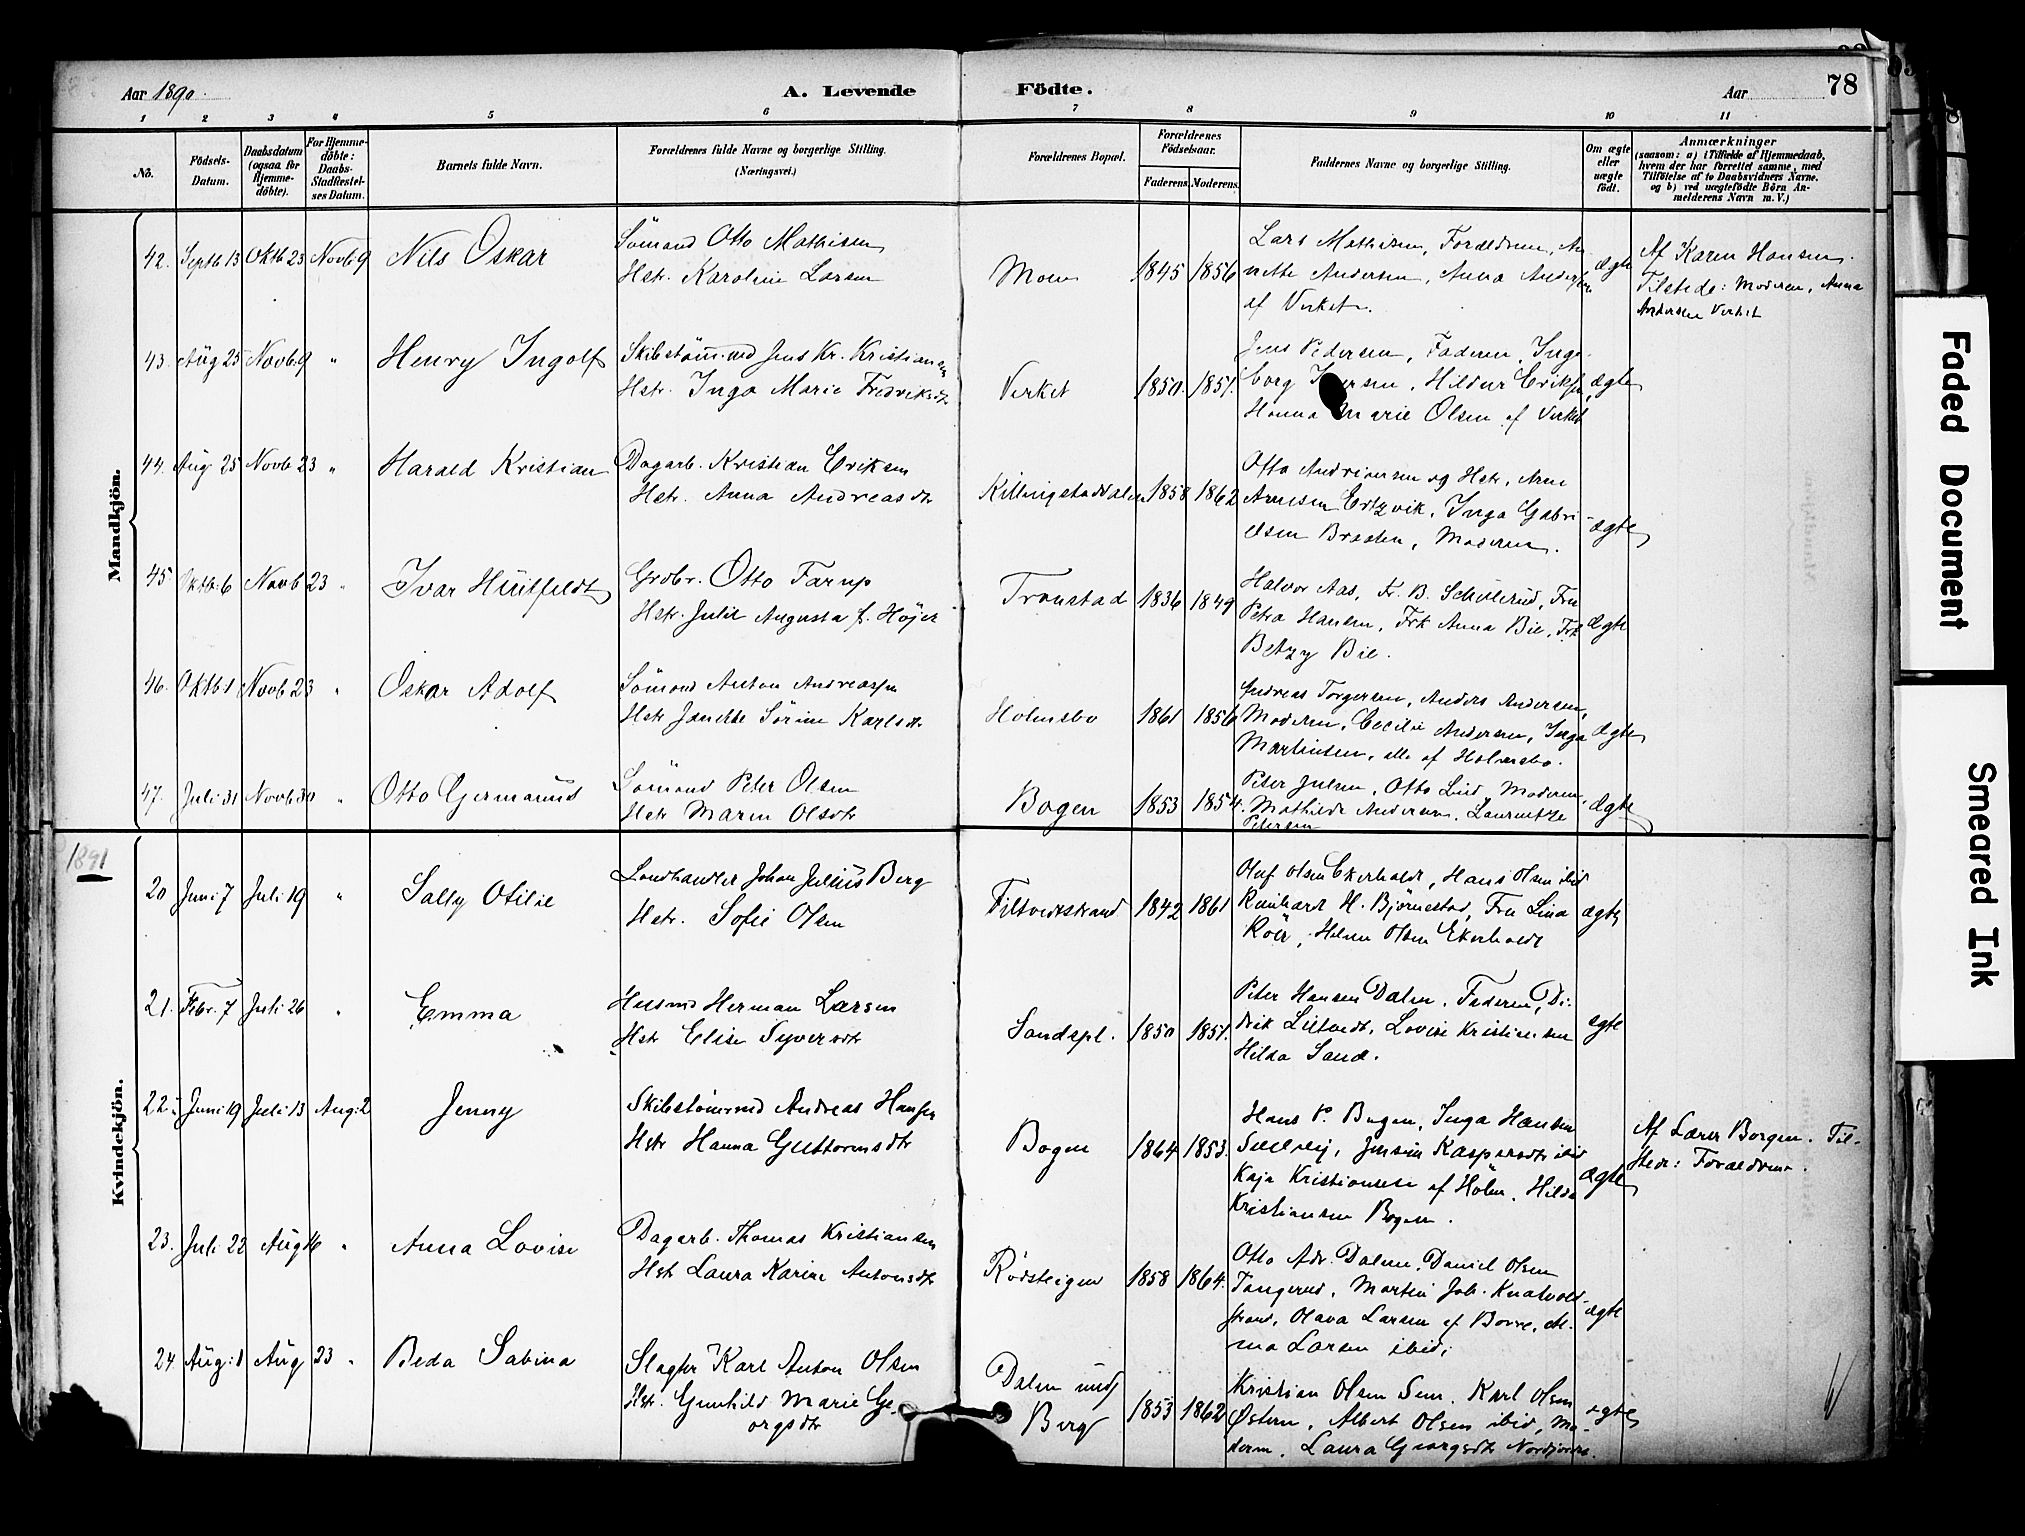 Aar 1890.
A. Levende
Födte.
Aar
78
1 2 3 4 5 6 7 8 9 10 11
No.
Födsels-Datum.
Daabsdatum (ogsaa for Hjemme-döbte).
For Hjemme-döbte: Daabs-Stadfæstel-ses Datum.
Barnets fulde Navn.
Forældrenes fulde Navne og borgerlige Stilling.
(Næringsvei.)
Forældrenes Bopæl.
Forældrenes Födselsaar.
Faderens. Moderens.
Faddernes Navne og borgerlige Stilling.
Om ægte eller uægte födt.
Anmærkninger
(saasom: a) i Tilfælde af Hjemmedaab,
hvem der har forrettet samme, med
Tilföielse af to Daabsvidners Navne.
og b) ved uægtefödte Börn An-
melderens Navn m. V.)
Mandkjön.
42. Septb 13 Oktb 23 Novb. 9 Nils Oskar
Sömand Otto Mathisen
Hstr. Karoline Larsen
Moen 1845 1856
Lars Mathisen, Forældrene, An-
nette Andersen, Anna Andersen
af Verket.
ægte
Af Karen Hansen.
Tilstede: Moderen, Anna
Andersen Verket
43. Aug 25 Novb. 9 " Henry Ingolf
Skibstömmd Jens Kr. Kristiansen
Hstr. Inga Marie Fredriksdtr
Verket 1850. 1851.
Jens Pedersen, Faderen, Inge-
borg Hildur Eriksen,
Hanna Marie Olsen af Verket
ægte
44. Aug 25 Novb 23 " Harald Kristian
Dagarb. Kristian Eriksen
Hstr. Anna Andreasdtr
Killingstaddalen 1858 1862
Otto Andriansen og Hstr, Arne
Arnesen Ertzvik, Inga Gabri-
elsen Braaten, Moderen.
ægte
45 Oktb. 6 Novb 23 " Ivar Hüitfeldt
Grdbr. Otto Farup
Hstr. Julie Augusta f. Höjer
Tronstad 1836 1849
Halvor Aas, Fr. B. Schülerud, Fru
Petra Hansen, Frk Anna Bie, Frk
Betzy Bie.
ægte
46. Oktb 1 Novb 23 " Oskar Adolf
Sömand Anton Andreassen
Hstr Janette Sörine Karlsdtr
Holmsbo 1861 1856
Andreas Torgersen, Anders Andersen,
Moderen, Cecilie Andersen, Inga
Martinsen, alle af Holmsbo.
ægte
47. Juli 31 Novb 30 " Otto Germanus
Sömand Peter Olsen
Hstr Maren Olsdtr
Bogen 1853 1854.
Peter Julsen, Otto Lind, Moderen,
Mathilde Andersen, Laurentze
Petersen
ægte
1891
Kvindekjön.
20 Juni 7 Juli 19 " Sally Otilie
Landhandler Johan Julius Berg
Hstr. Sofie Olsen
Filtvedtstrand 1842 1861
Oluf Olsen Ekerholdt, Hans Olsen ibid
Reinhart H. Björnestad, Fru Lina
Röer, Helene Olsen Ekerholdt
ægte
21. Febr. 7 Juli 26 " Emma
Husmd Herman Larsen
Hstr Elise Syversdtr
Sandspl. 1850 1851.
Peter Hansen Dalen, Faderen, Di-
drik Lilletvedt, Lovise Kristiansen
Hilda Sand.
ægte
22. Juni 19 Juli 13 Aug: 2 Jenny
Skibstömmd Andreas Hansen
Hstr Hanna Guttormsdtr
Bogen 1864 1853.
Hans P. Bogen, Inga Hansen
Jensine Kaspersdtr ibid
Kaja Kristiansen af Holm, Hilda
Kristiansen Bogen.
ægte
Af Lærer Borgen. Til-
stede: Forældrene.
23. Juli 22 Aug 16 " Anna Lovise
Dagarb. Thomas Kristiansen
Hstr Laura Karine Antonsdtr
Rödsteigen 1858 1864.
Otto Adr. Dalen, Daniel Olsen
Tangerud, Martin Joh. Knatvold-
strand, Olava Larsen af Borre, Al-
ma Larsen ibid.
ægte
24. Aug: 1 Aug 23 " Beda Sabina
Slagter Karl Anton Olsen
Hstr. Gunhild Marie Ge-
orgsdtr
Dalen und/
Berg 1853 1862
Kristian Olsen Sem, Karl Olsen
Östern, Albert Olsen ibid, Mo-
deren, Laura Georgsdtr
ægte
Faded Document
Smeared Ink